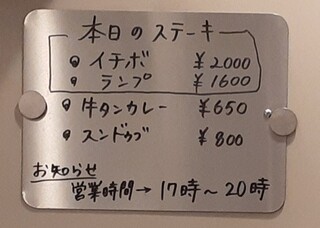 本日のステーキ
イチボ ¥2000
ランプ ¥1600
牛タンカレー ¥650
スンドゥブ ¥800
お知らせ
営業時間→17時～20時